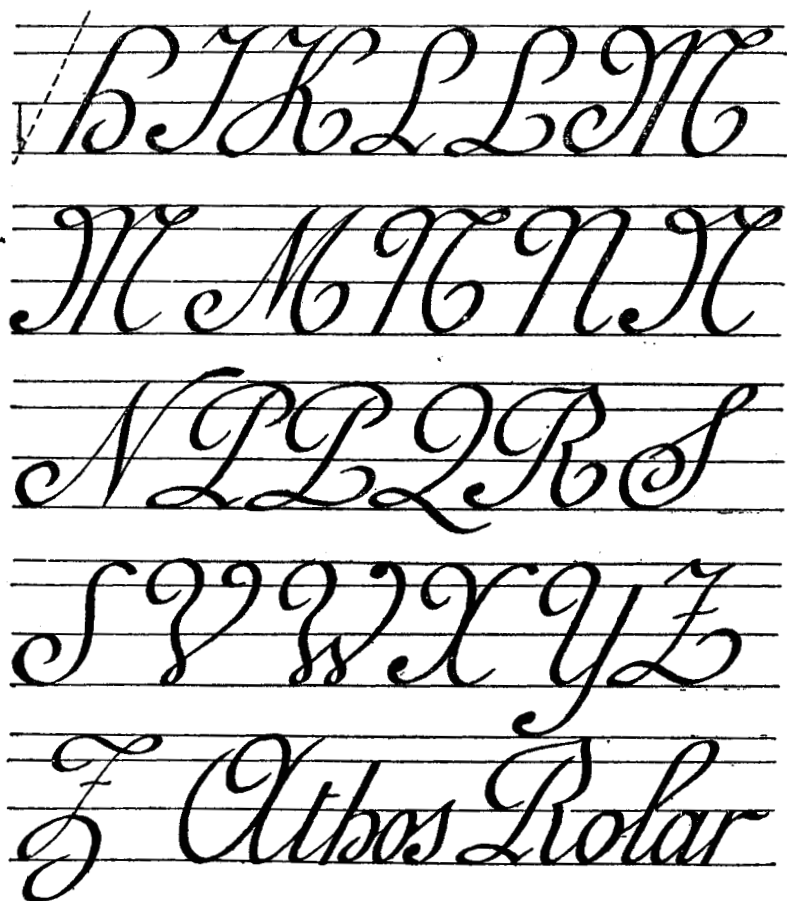 H I K L L M
M M N N N
N P P Q R S
S V W X Y Z
Z Athos Rolar